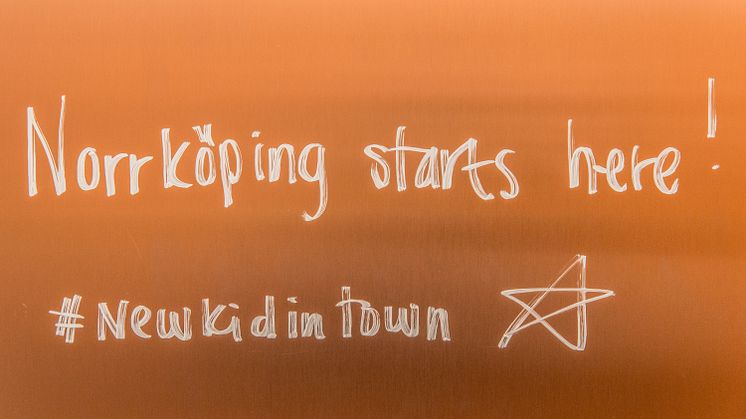 Norrköping starts here!
#Newkidintown